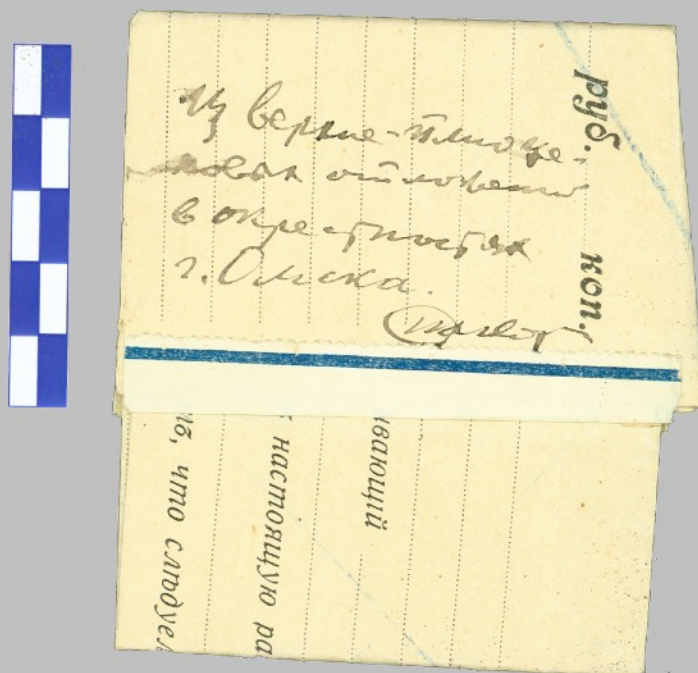 Из верхне-плиоце-
новых отложений
в окрестностях
г. Омска.
руб. коп.
вающій
настоящую ра
что слѣдуе